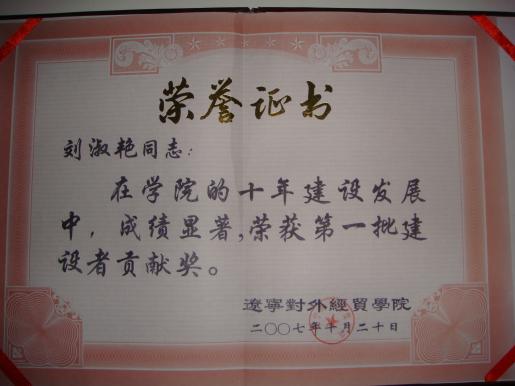 荣誉证书
刘淑艳同志:
在学院的十年建设发展
中,成绩显著,荣获第一批建
设者贡献奖。
遼寧對外經貿學院
二〇〇七年十月二十日